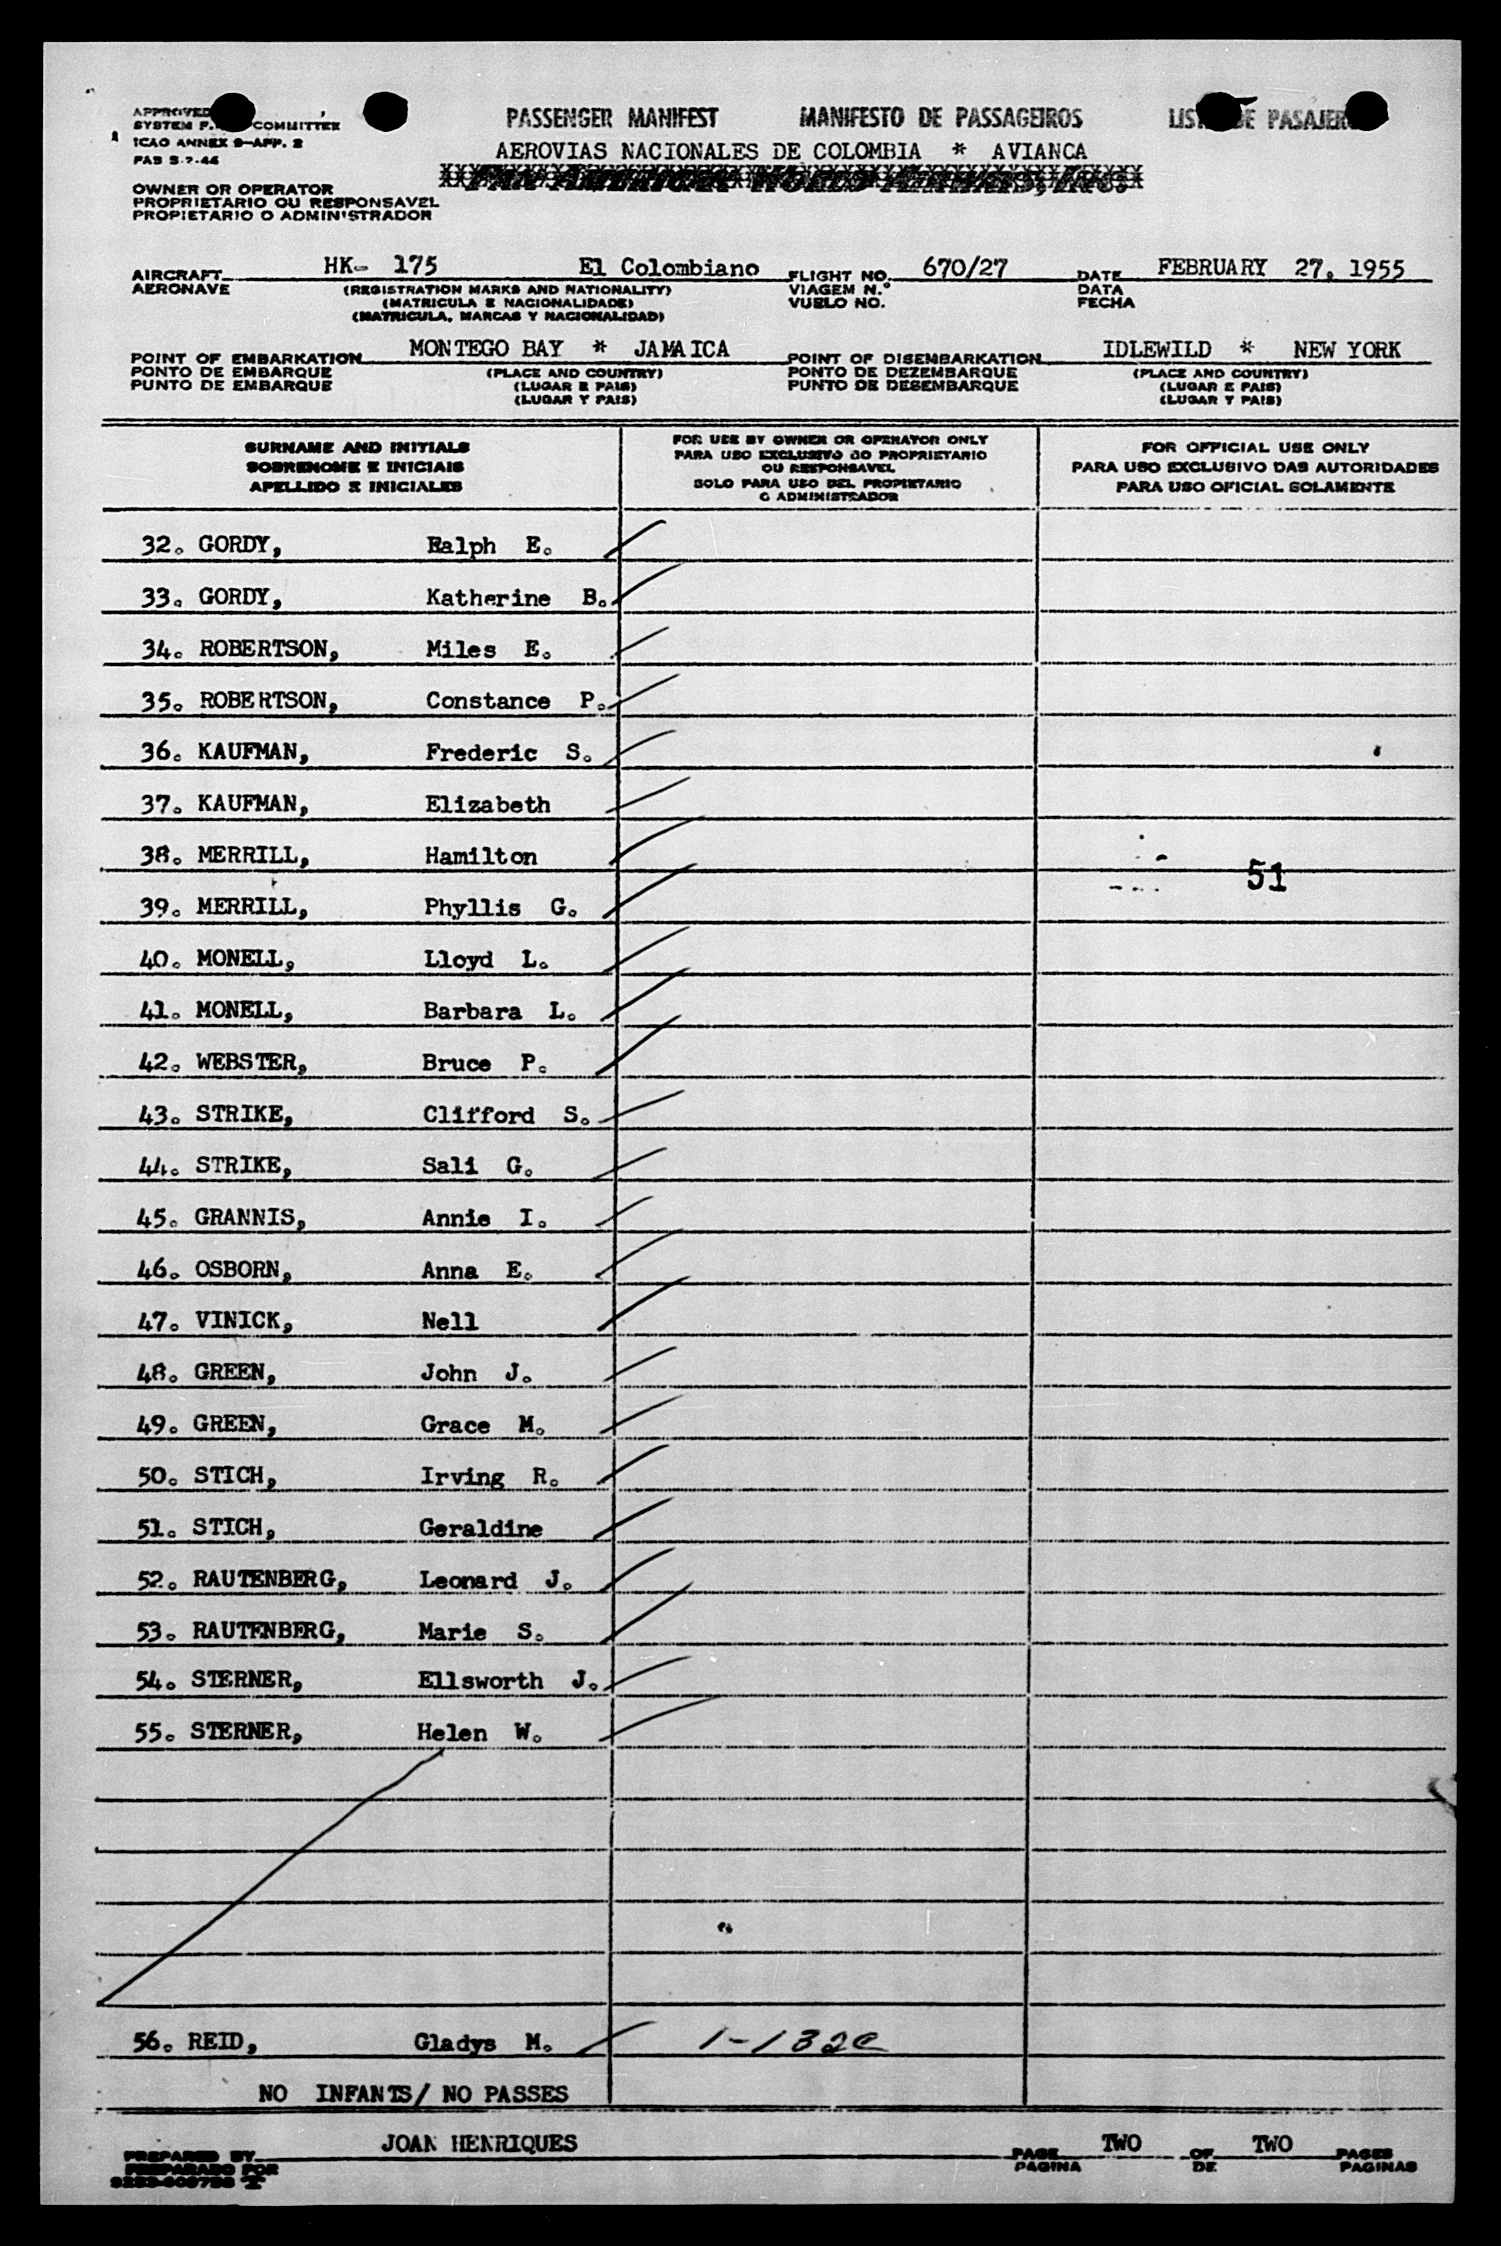 APPROVED
SYSTEM F. COMMITTEE
ICAO ANNEX 9-APP. 2
PAB 5-7-46
PASSENGER MANIFEST MANIFESTO DE PASSAGEIROS LISTA DE PASAJEROS
AEROVIAS NACIONALES DE COLOMBIA * AVIANCA
PAN AMERICAN WORLD AIRWAYS, INC.
OWNER OR OPERATOR
PROPRIETARIO OU RESPONSAVEL
PROPIETARIO O ADMINISTRADOR
AIRCRAFT HK- 175 El Colombiano FLIGHT NO. 670/27 DATE FEBRUARY 27, 1955
AERONAVE (REGISTRATION MARKS AND NATIONALITY) VIAGEM N.° DATA
(MATRICULA E NACIONALIDADE) VUELO NO. FECHA
(MATRICULA, MARCAS Y NACIONALIDAD)
POINT OF EMBARKATION MONTEGO BAY * JAMAICA POINT OF DISEMBARKATION IDLEWILD * NEW YORK
PONTO DE EMBARQUE (PLACE AND COUNTRY) PONTO DE DEZEMBARQUE (PLACE AND COUNTRY)
PUNTO DE EMBARQUE (LUGAR E PAIS) PUNTO DE DESEMBARQUE (LUGAR E PAIS)
(LUGAR Y PAIS) (LUGAR Y PAIS)
SURNAME AND INITIALS
SOBRENOME E INICIAIS
APELLIDO E INICIALES
FOR USE BY OWNER OR OPERATOR ONLY
PARA USO EXCLUSIVO DO PROPRIETARIO
OU RESPONSAVEL
SOLO PARA USO DEL PROPIETARIO
O ADMINISTRADOR
FOR OFFICIAL USE ONLY
PARA USO EXCLUSIVO DAS AUTORIDADES
PARA USO OFICIAL SOLAMENTE
32. GORDY, Ralph E.
33. GORDY, Katherine B.
34. ROBERTSON, Miles E.
35. ROBERTSON, Constance P.
36. KAUFMAN, Frederic S.
37. KAUFMAN, Elizabeth
38. MERRILL, Hamilton
51
39. MERRILL, Phyllis G.
40. MONELL, Lloyd L.
41. MONELL, Barbara L.
42. WEBSTER, Bruce P.
43. STRIKE, Clifford S.
44. STRIKE, Sali G.
45. GRANNIS, Annie I.
46. OSBORN, Anna E.
47. VINICK, Nell
48. GREEN, John J.
49. GREEN, Grace M.
50. STICH, Irving R.
51. STICH, Geraldine
52. RAUTENBERG, Leonard J.
53. RAUTENBERG, Marie S.
54. STERNER, Ellsworth J.
55. STERNER, Helen W.
56. REID, Gladys M. 1-132c
NO INFANTS/ NO PASSES
PREPARED BY JOAN HENRIQUES PAGE TWO OF TWO PAGES
PREPARADO POR PAGINA DE PAGINAS